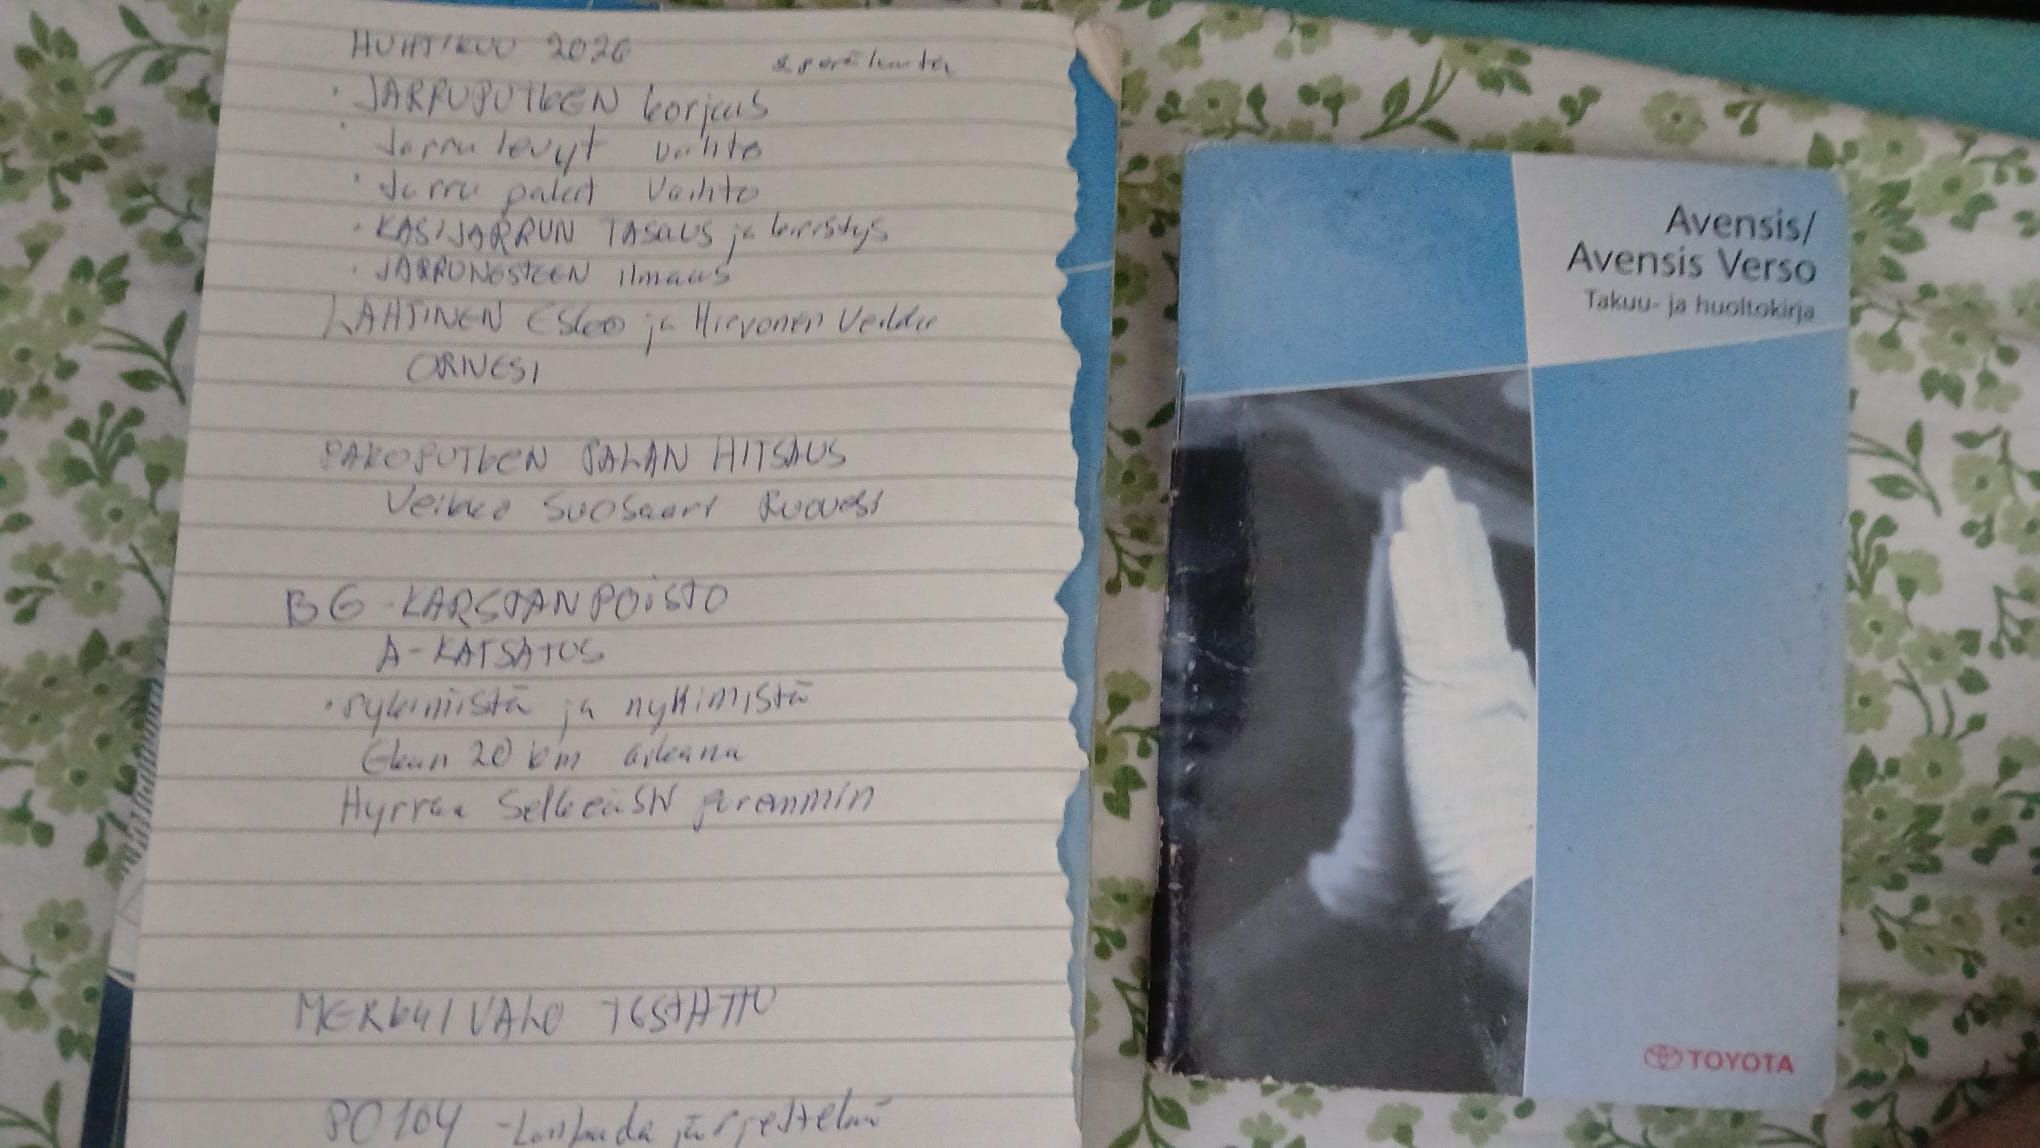 HUHTIKUU 2026
· JARRUPUTKEN korjaus
· Jarru levyt vaihto
· Jarru palat vaihto
· KÄSIJARRUN TASAUS ja kiristys
· JARRUNESTEEN ilmaus
LAHTINEN Esko ja Hirvonen Veikko
ORIVESI
PAKOPUTKEN PALAN HITSAUS
Veikko Suosaari Ruovesi
BG-KARSTANPOISTO
A-KATSATUS
· nykimistä ja nyttimistä
20 km aikana
Hyrrää Selkeästi paremmin
MERKKIVALO TESTATTU
PO104 - järjestelmä
Avensis/
Avensis Verso
Takuu- ja huoltokirja
TOYOTA